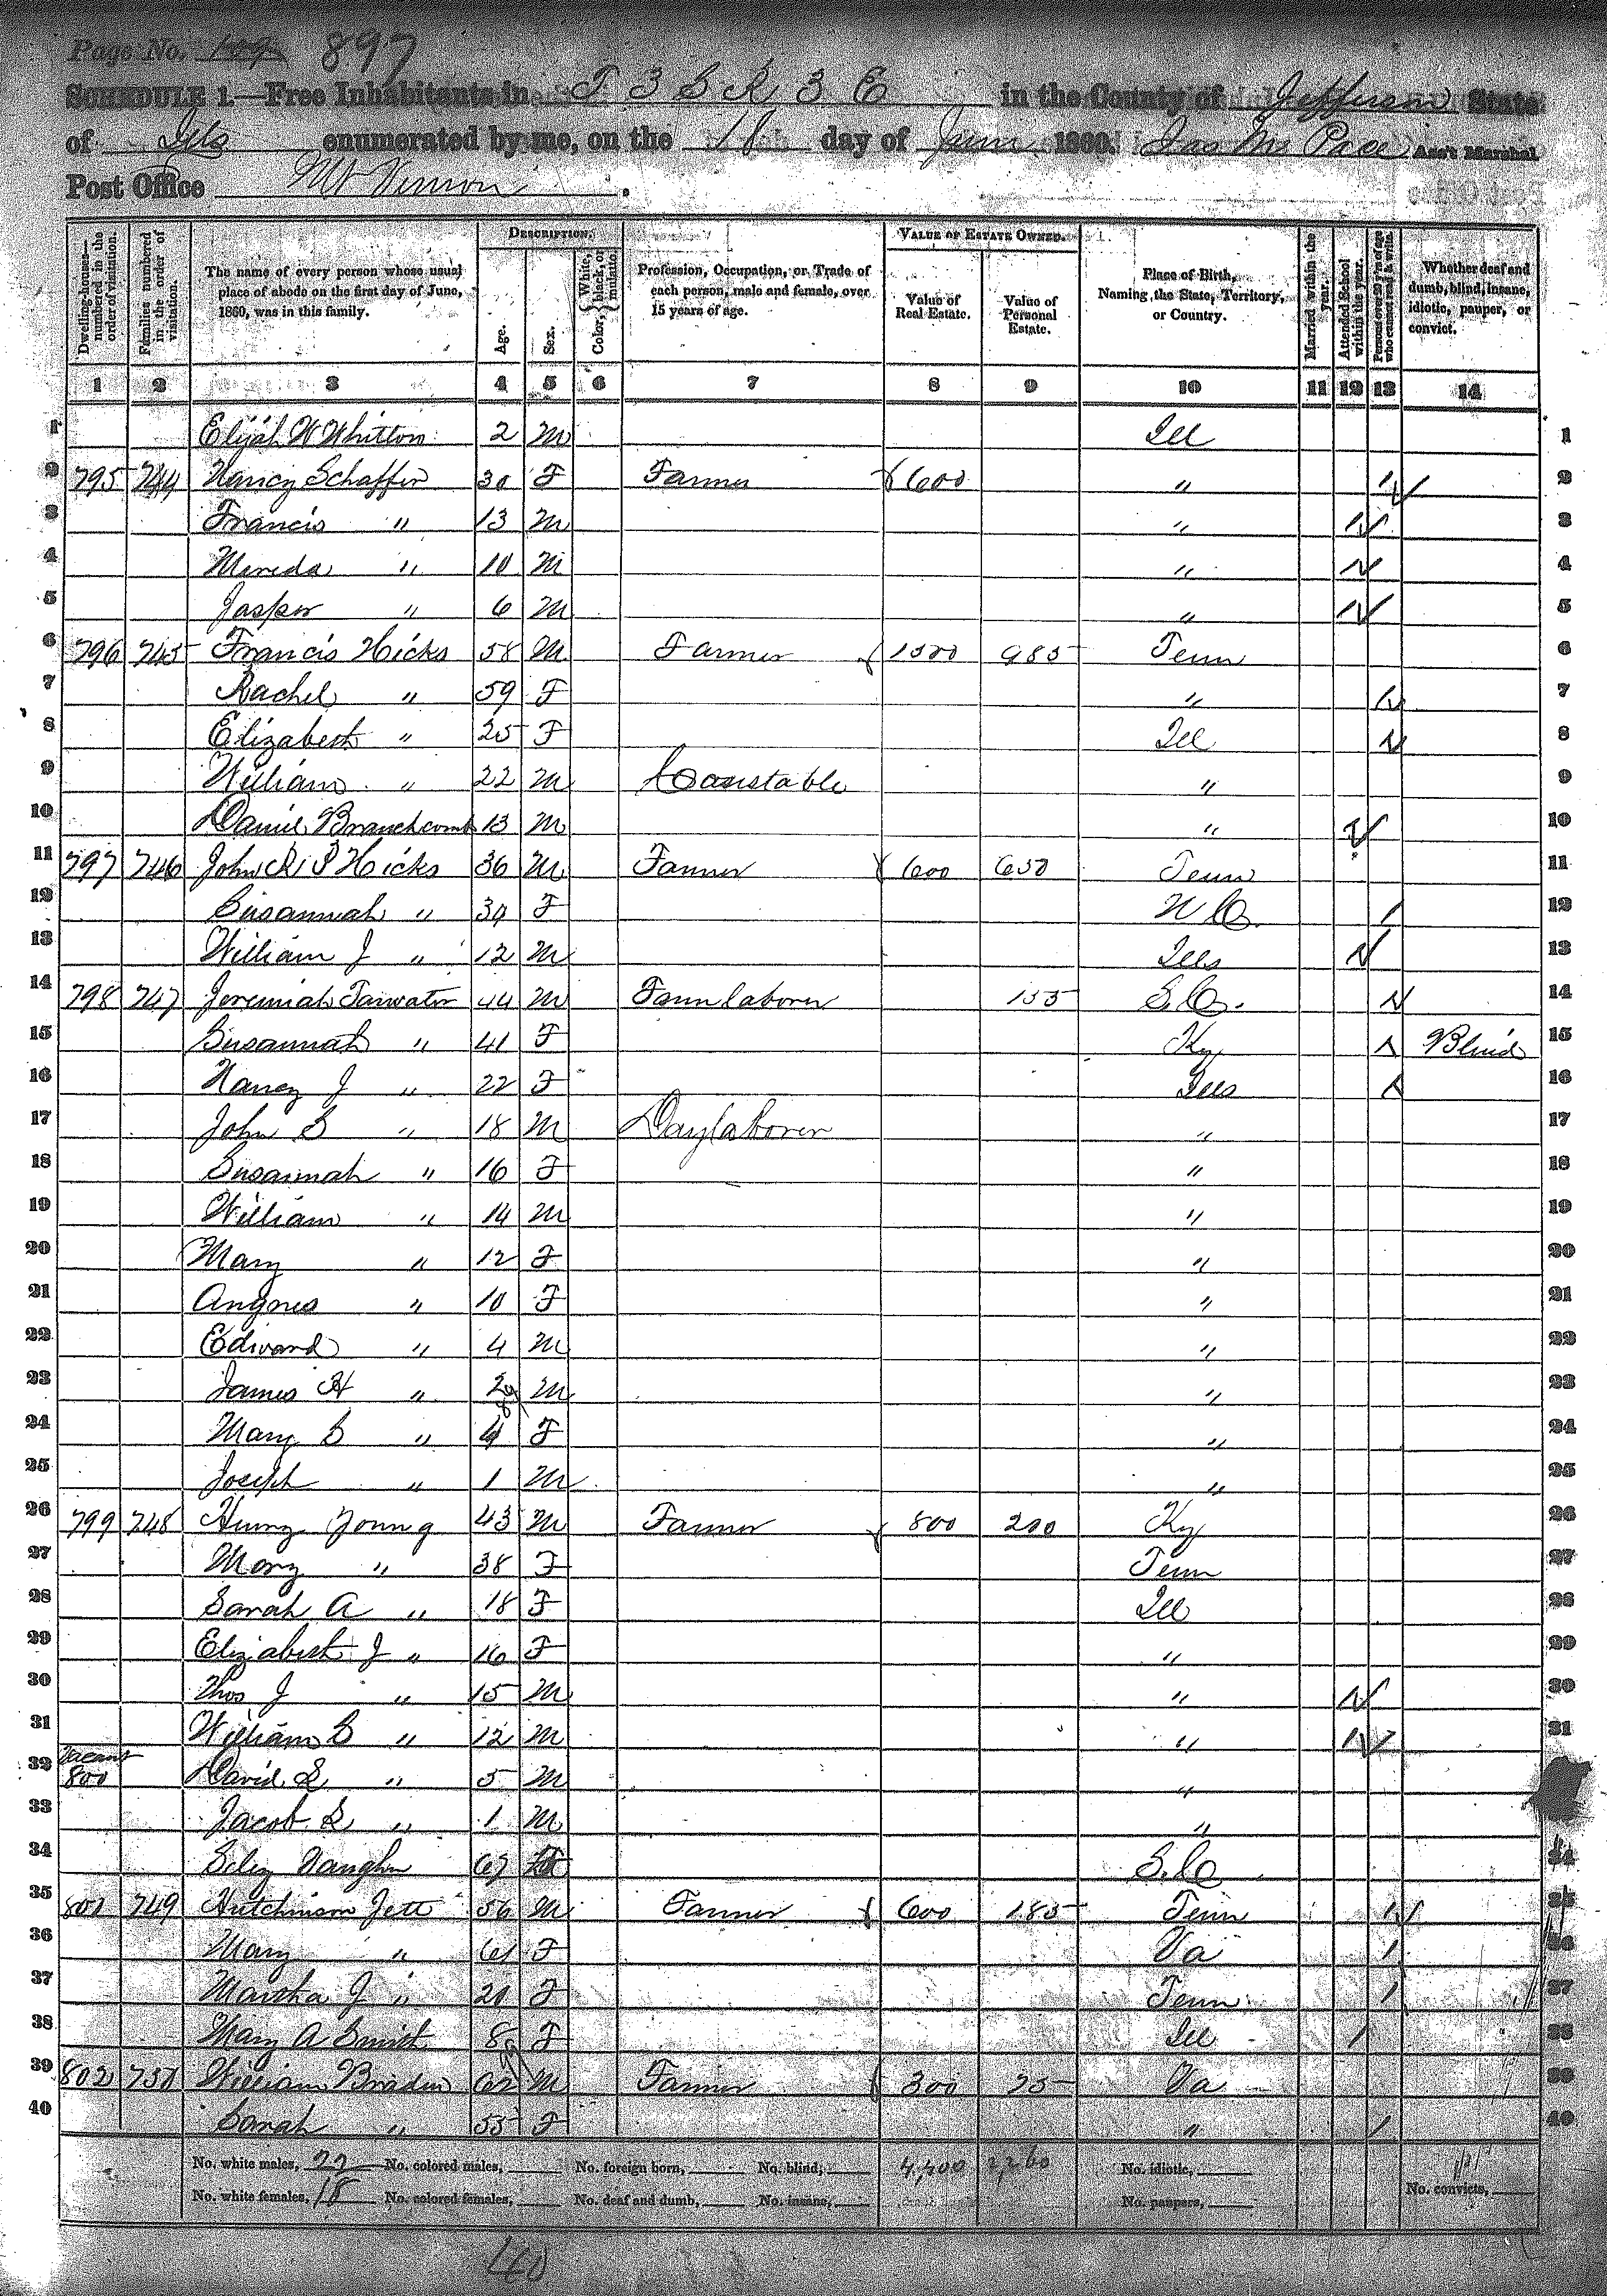 Page No. 109 897
SCHEDULE 1.—Free Inhabitants in T 3 S R 3 E in the County of Jefferson State
of Ills enumerated by me, on the 18 day of June 1860. Jas M Pace Ass't Marshal
Post Office Mt Vernon.
Dwelling-houses—numbered in the order of visitation.
Families numbered in the order of visitation.
The name of every person whose usual place of abode on the first day of June, 1860, was in this family.
DESCRIPTION.
Age.
Sex.
Color, { White, black, or mulatto.
Profession, Occupation, or Trade of each person, male and female, over 15 years of age.
VALUE OF ESTATE OWNED.
Value of Real Estate.
Value of Personal Estate.
Place of Birth, Naming the State, Territory, or Country.
Married within the year.
Attended School within the year.
Persons over 20 y'rs of age who cannot read & write.
Whether deaf and dumb, blind, insane, idiotic, pauper, or convict.
1 2 3 4 5 6 7 8 9 10 11 12 13 14
1 Elijah W Whitton 2 M Ill 1
2 795 744 Nancy Schaffer 30 F Farmer 600 " 1 2
3 Francis " 13 M " 1 3
4 Mereda " 10 M " 1 4
5 Jasper " 6 M " 1 5
6 796 745 Francis Hicks 58 M Farmer 1500 985 Tenn 6
7 Rachel " 59 F " 1 7
8 Elizabeth " 25 F Ill 1 8
9 William " 22 M Constable " 9
10 Daniel Branchcomb 13 M " 1 10
11 797 746 John R P Hicks 36 M Farmer 600 650 Tenn 11
12 Susannah " 39 F N C. 1 12
13 William J " 12 M Ills 1 13
14 798 747 Jeremiah Tarwater 44 M Farm laborer 155 S.C. 1 14
15 Susannah " 41 F Ky 1 Blind 15
16 Nancy J " 22 F Ills 1 16
17 John S " 18 M Day laborer " 17
18 Susannah " 16 F " 18
19 William " 14 M " 19
20 Mary " 12 F " 20
21 Angnes " 10 F " 21
22 Edward " 4 M " 22
23 James H " 2 M " 23
24 Mary S " 4 F " 24
25 Joseph " 1 M " 25
26 799 748 Henry Young 43 M Farmer 800 200 Ky 26
27 Mary " 38 F Tenn 27
28 Sarah A " 18 F Ill 28
29 Elizabeth J " 16 F " 29
30 Thos J " 15 M " 1 30
31 William S " 12 M " 1 31
32 Vacant 800 David S " 5 M "
33 Jacob S " 1 M " 33
34 Vaughn 67 S.C 34
35 801 749 Hutchinson Jett 56 M Farmer 600 185 Tenn 1 35
36 Mary " 61 F Va 1 36
37 Martha J " 20 F Tenn 1 37
38 Mary A Smith 8 F Ill 1 38
39 802 750 William Braden 62 M Farmer 300 75 Va 39
40 Sarah " 55 F " 1 40
No. white males, 22 No. colored males, No. foreign born, No. blind, 4,400 2,260 No. idiotic,
No. white females, 18 No. colored females, No. deaf and dumb, No. insane, No. paupers, No. convicts,
40